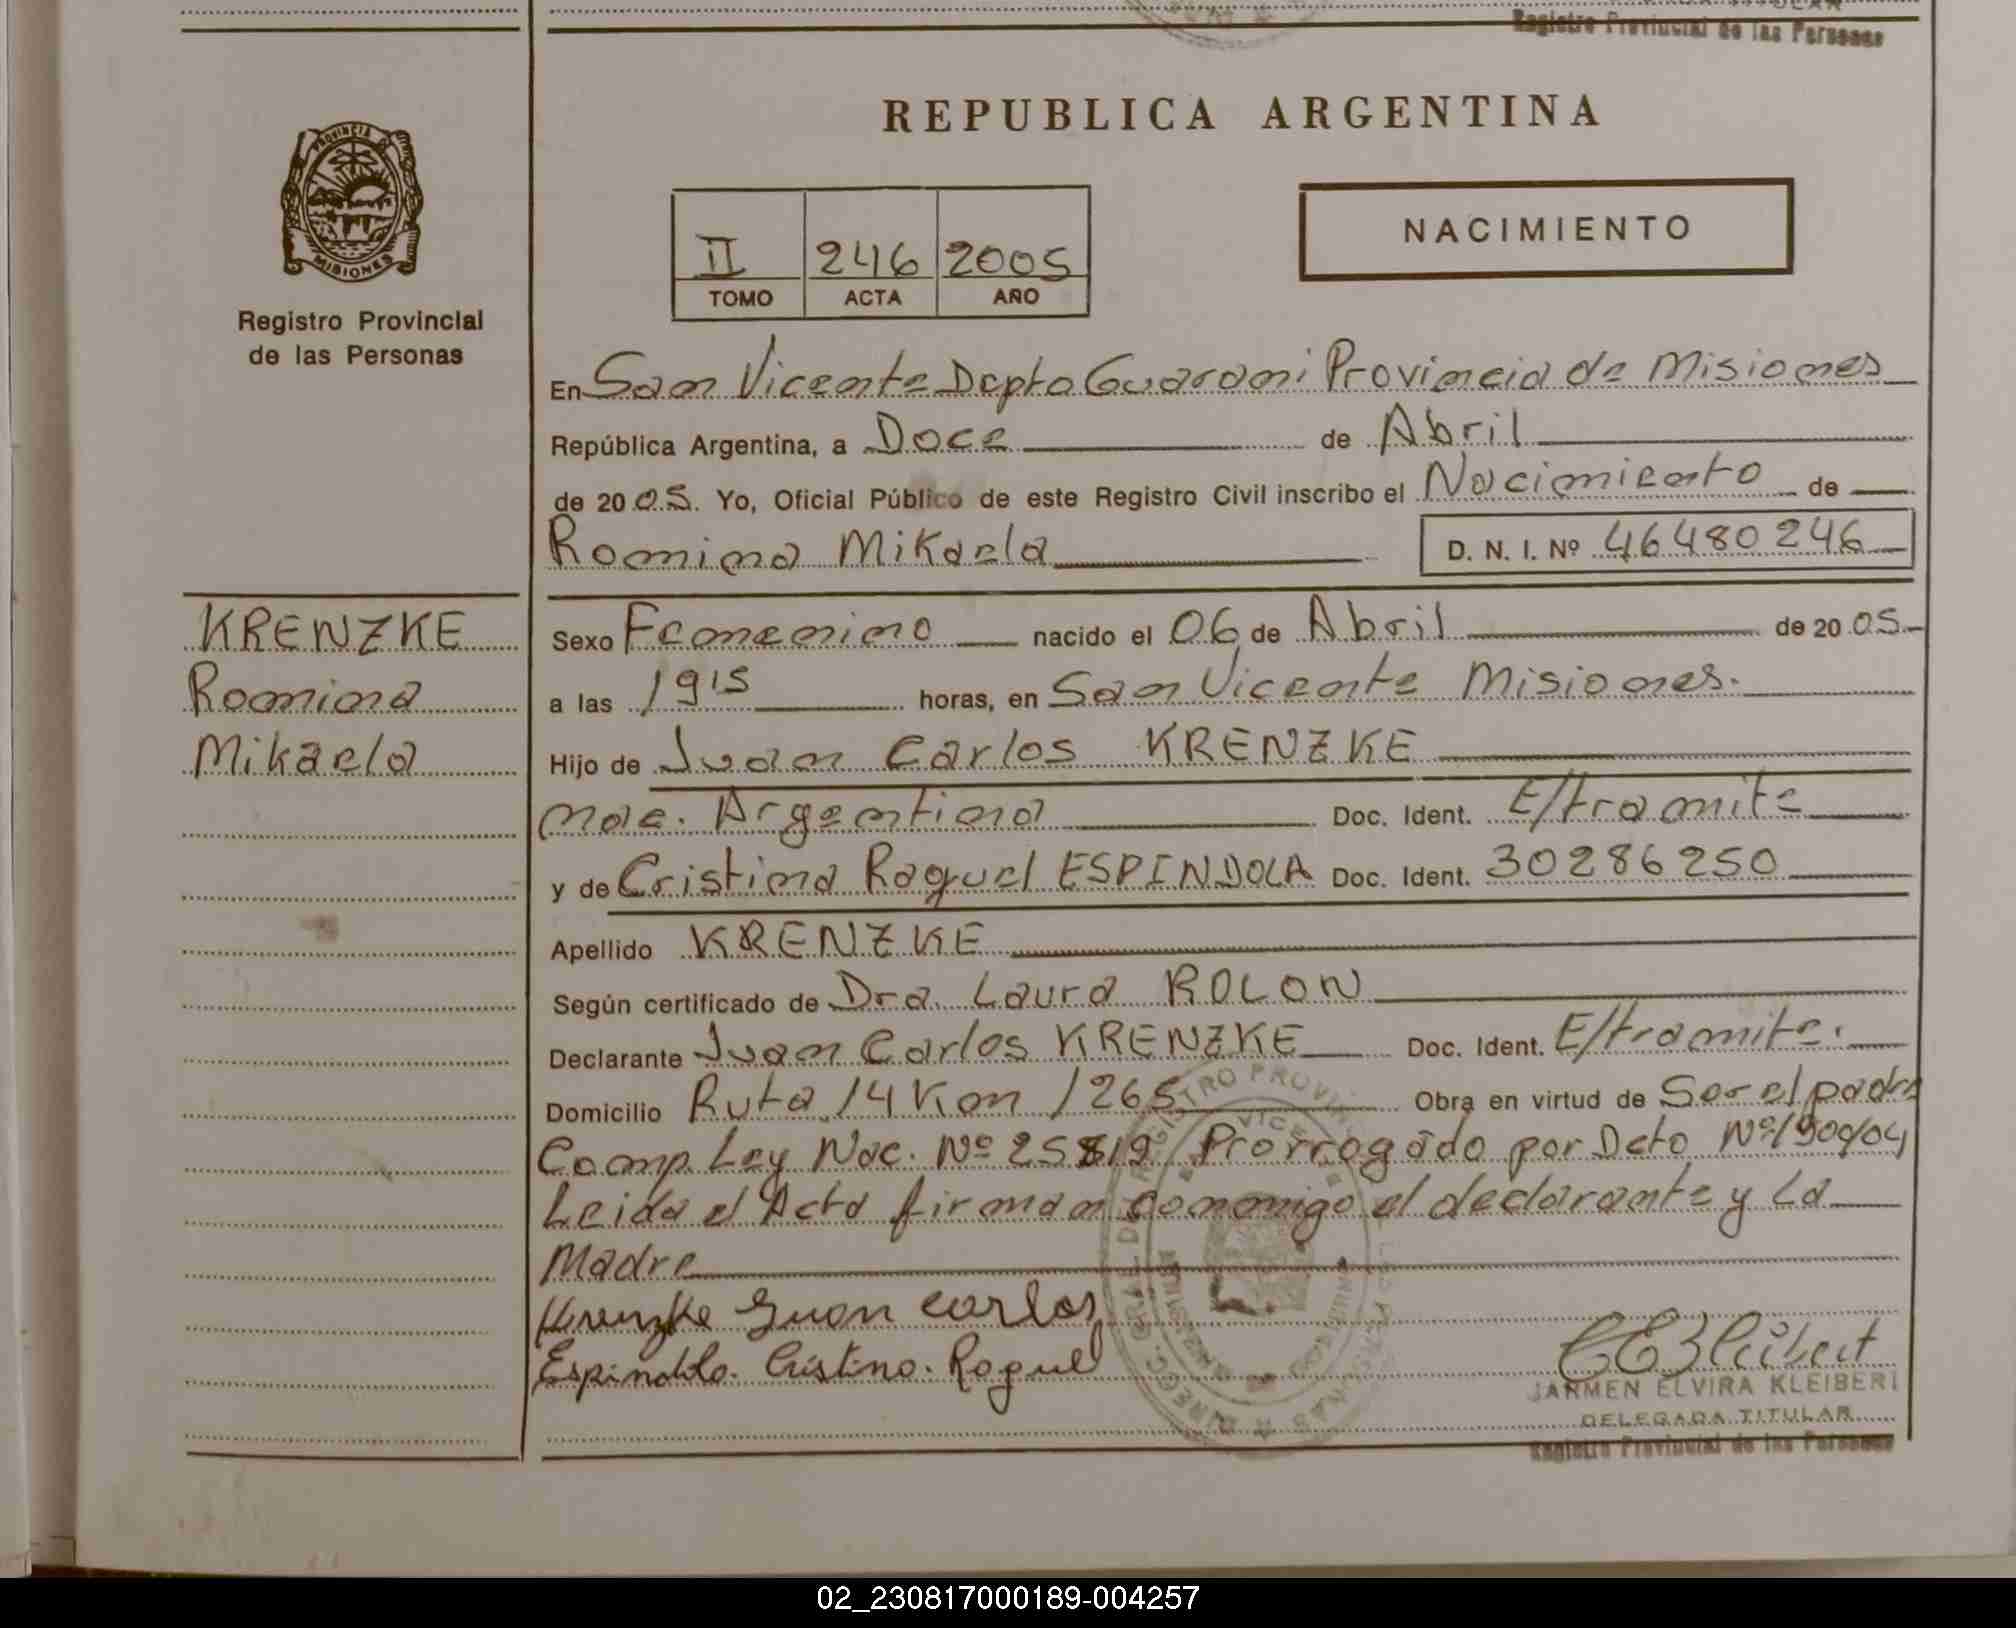 Registro Provincial de las Personas
REPUBLICA ARGENTINA
PROVINCIA DE
MISIONES
Registro Provincial
de las Personas
II 246 2005
TOMO ACTA AÑO
NACIMIENTO
En San Vicente Depto Guarani Provincia de Misiones
República Argentina, a Doce de Abril
de 2005. Yo, Oficial Público de este Registro Civil inscribo el Nacimiento de
Romina Mikaela D. N. I. Nº 46480246
KRENZKE
Romina
Mikaela
Sexo Femenino nacido el 06 de Abril de 2005
a las 19 15 horas, en San Vicente Misiones.
Hijo de Juan Carlos KRENZKE
nac. Argentina Doc. Ident. E/tramite
y de Cristina Raquel ESPINDOLA Doc. Ident. 30286250
Apellido KRENZKE
Según certificado de Dra. Laura ROLON
Declarante Juan Carlos KRENZKE Doc. Ident. E/tramite.
Domicilio Ruta 14 Km 1265 Obra en virtud de Ser el padre
Comp. Ley Nac. Nº 25819 Prorrogado por Dcto Nº 1900/04
Leida el Acta firman conmigo el declarante y La
Madre
Krenzke Juan Carlos
Espindola. Cristina. Raquel
CARMEN ELVIRA KLEIBERT
DELEGADA TITULAR
Registro Provincial de las Personas
02_230817000189-004257